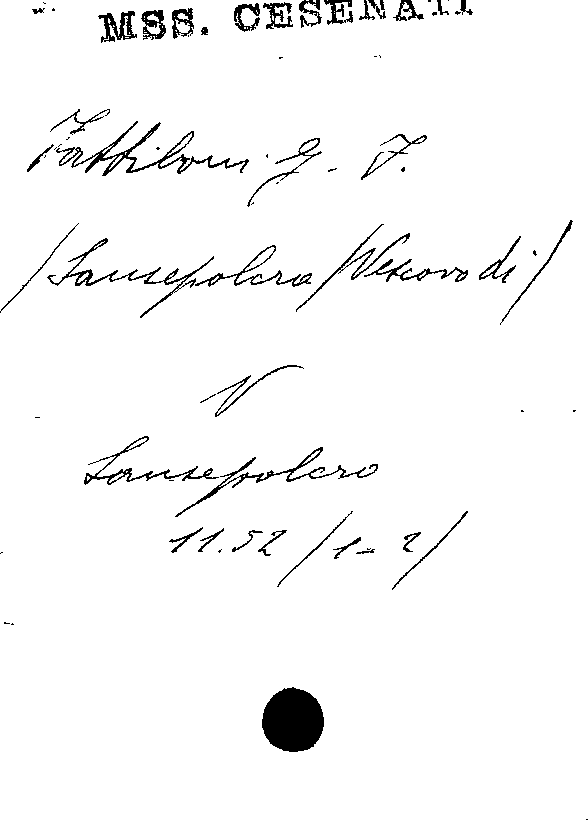 MSS. CESENATI
Fattiboni G. F.
/Sansepolcro/Vescovo di/
V
Sansepolcro
11.52 /1-2/